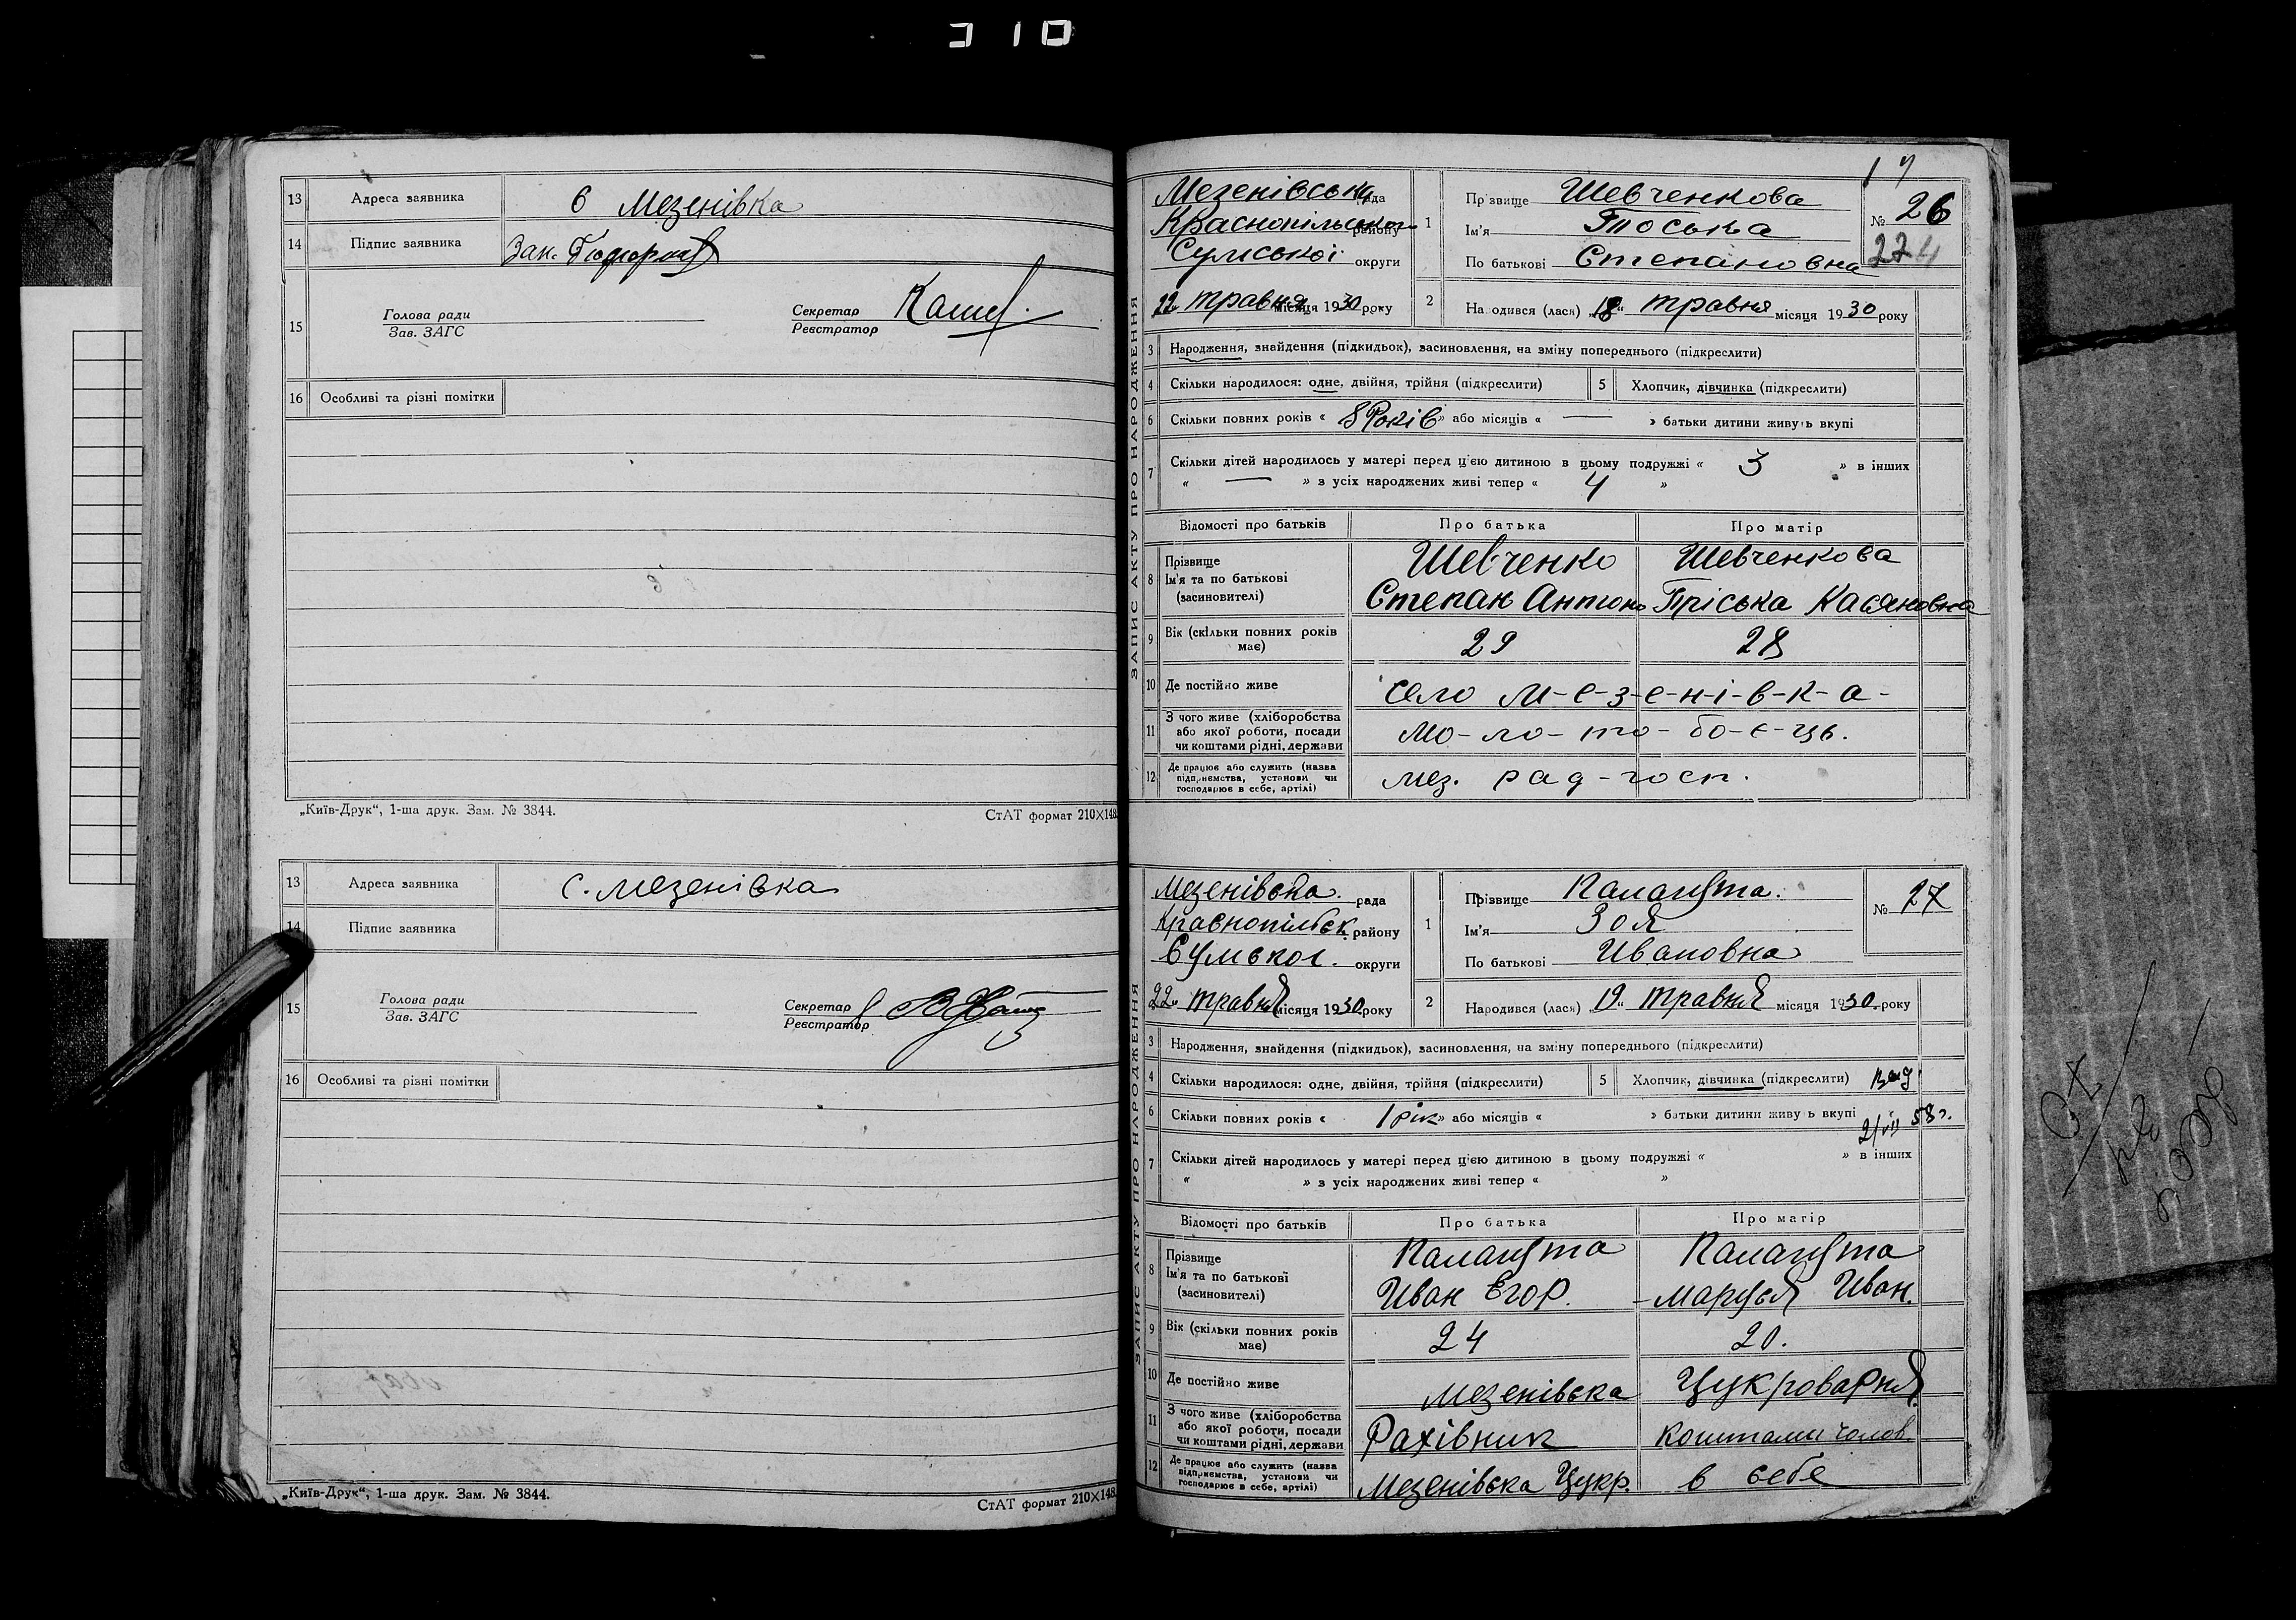 310
13 Адреса заявника в Мезенівка
14 Підпис заявника Зак.
15 Голова ради Секретар
Зав. ЗАГС Реєстратор
16 Особливі та різні помітки
„Київ-Друк“, 1-ша друк. Зам. № 3844. СтАТ формат 210×148.
13 Адреса заявника с. Мезенівка
14 Підпис заявника
15 Голова ради Секретар
Зав. ЗАГС Реєстратор
16 Особливі та різні помітки
„Київ-Друк“, 1-ша друк. Зам. № 3844. СтАТ формат 210×148.
17
ЗАПИС АКТУ ПРО НАРОДЖЕННЯ
Мезенівська рада
Краснопільської району
Сумської округи
22 травня місяця 1930 року
1 Прізвище Шевченкова
Ім'я Тоська
По батькові Степановна
№ 26
274
2 Народився (лася) „18“ травня місяця 1930 року
3 Народження, знайдення (підкидьок), засиновлення, на зміну попереднього (підкреслити)
4 Скільки народилося: одне, двійня, трійня (підкреслити) 5 Хлопчик, дівчинка (підкреслити)
6 Скільки повних років « 8 Років » або місяців « — » батьки дитини живуть вкупі
7 Скільки дітей народилось у матері перед цією дитиною в цьому подружжі « 3 » в інших
« — » з усіх народжених живі тепер « 4 »
Відомості про батьків Про батька Про матір
8 Прізвище Ім'я та по батькові (засиновителі) Шевченко Шевченкова
Степан Антон Пріська Касяновна
9 Вік (скільки повних років має) 29 28
10 Де постійно живе село М-е-з-е-н-і-в-к-а-
11 З чого живе (хліборобства або якої роботи, посади чи коштами рідні, держави Мо-ло-то-бо-є-ць.
12 Де працює або служить (назва підприємства, установи чи господарює в себе, артілі) Мез. рад-госп.
ЗАПИС АКТУ ПРО НАРОДЖЕННЯ
Мезенівська рада
Краснопільск району
Сумскої округи
22 травня місяця 1930 року
1 Прізвище Калагута.
Ім'я Зоя
По батькові Ивановна
№ 27
2 Народився (лася) „19“ травня місяця 1930 року
3 Народження, знайдення (підкидьок), засиновлення, на зміну попереднього (підкреслити)
4 Скільки народилося: одне, двійня, трійня (підкреслити) 5 Хлопчик, дівчинка (підкреслити)
6 Скільки повних років « 1 рік » або місяців « » батьки дитини живуть вкупі
2/VII 58 г.
7 Скільки дітей народилось у матері перед цією дитиною в цьому подружжі « » в інших
« » з усіх народжених живі тепер « »
Відомості про батьків Про батька Про матір
8 Прізвище Ім'я та по батькові (засиновителі) Калагута Калагута
Иван Егор. Маруся Иван.
9 Вік (скільки повних років має) 24 20.
10 Де постійно живе Мезенівска Цукроварня
11 З чого живе (хліборобства або якої роботи, посади чи коштами рідні, держави Рахівник Коштами чолов.
12 Де працює або служить (назва підприємства, установи чи господарює в себе, артілі) Мезенівска Цукр. в себе